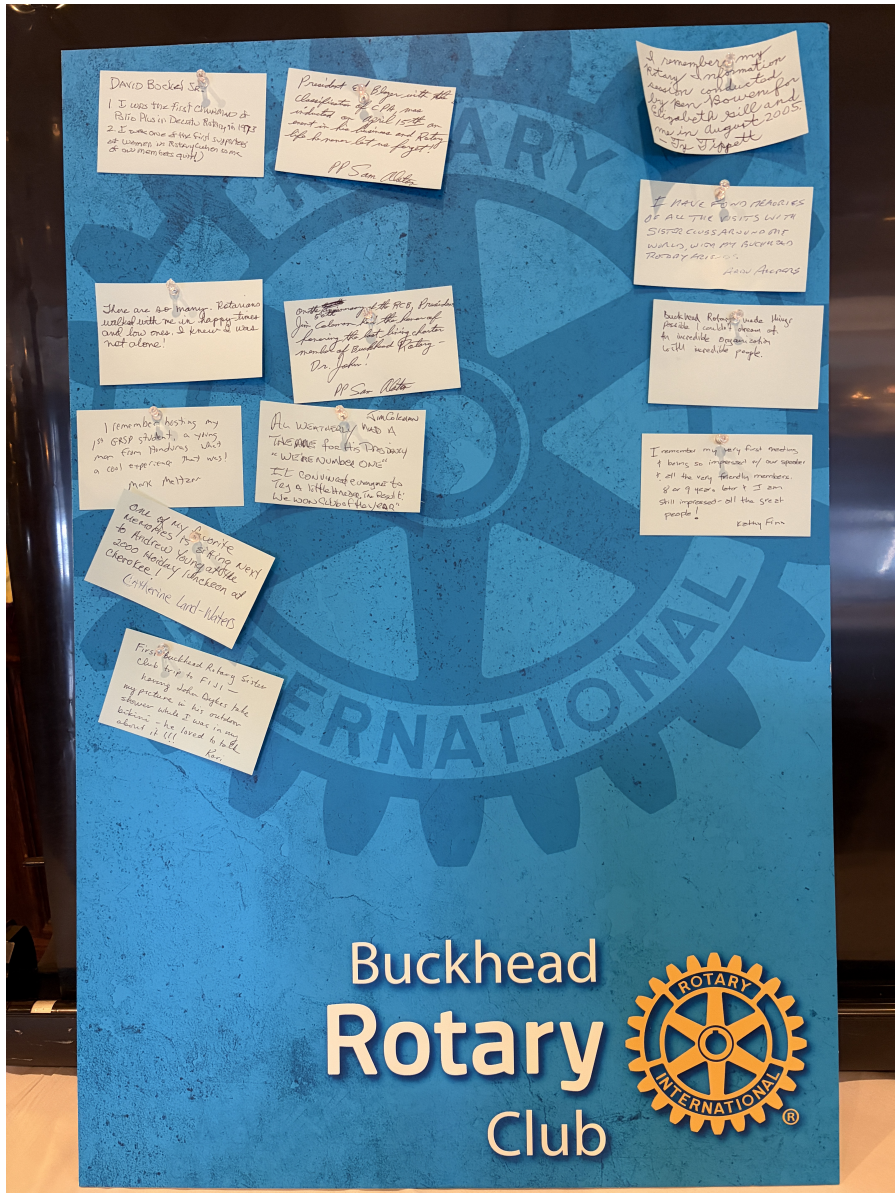 DAVID Bockel Sr.
1. I was the first Chairman of
Polio Plus in Decatur Rotary in 1973
2. I was one of the first supporters
of women in Rotary (Lution some
of our members quit)
President Ed Bloyer with the
classification of CPA, was
inducted on April 15th an
event in his business and Rotary
life he never let me forget!!
PP Sam
I remember my
Rotary Information
session conducted
by Ken Bowen for
Elizabeth Gill and
me in August 2005.
Tippett
I HAVE FOND MEMORIES
OF ALL THE VISITS WITH
SISTER CLUBS AROUND THE
WORLD, WITH MY BUCKHEAD
ROTARY
There are so many. Rotarians
walked with me in happy times
and low ones. I knew I was
not alone!
on the anniversary of the RCB, President
Jim Coleman had the honor of
honoring the last living charter
member of Buckhead Rotary -
Dr. John!
PP Sam
Buckhead Rotary made things
possible I couldn't dream of.
An incredible organization
with incredible people.
I remember hosting my
1st GRSP student, a young
man from Honduras. What
a cool experience that was!
Mark Meltzer
Jim Coleman
AL WEATHERLY HAD A
THEME for His Presidency
"WE'RE NUMBER ONE"
It convinced everyone to
Try a little Harder. In Result:
We won Club of the YEAR"
I remember my very first meeting
& being so impressed w/ our speaker
& all the very friendly members.
8 or 9 years later & I am
still impressed - all the great
people!
Kathy Finn
One of my favorite
Memories is sitting next
to Andrew Young at the
2000 Holiday luncheon at
Cherokee!
Catherine Land-Waters
First Buckhead Rotary Sister
Club trip to FIJI -
having John Dykes take
my picture in his outdoor
shower while I was in my
bikini - he loved to talk
about it !!!
ROTARY
INTERNATIONAL
Buckhead
Rotary
Club
ROTARY
INTERNATIONAL
®